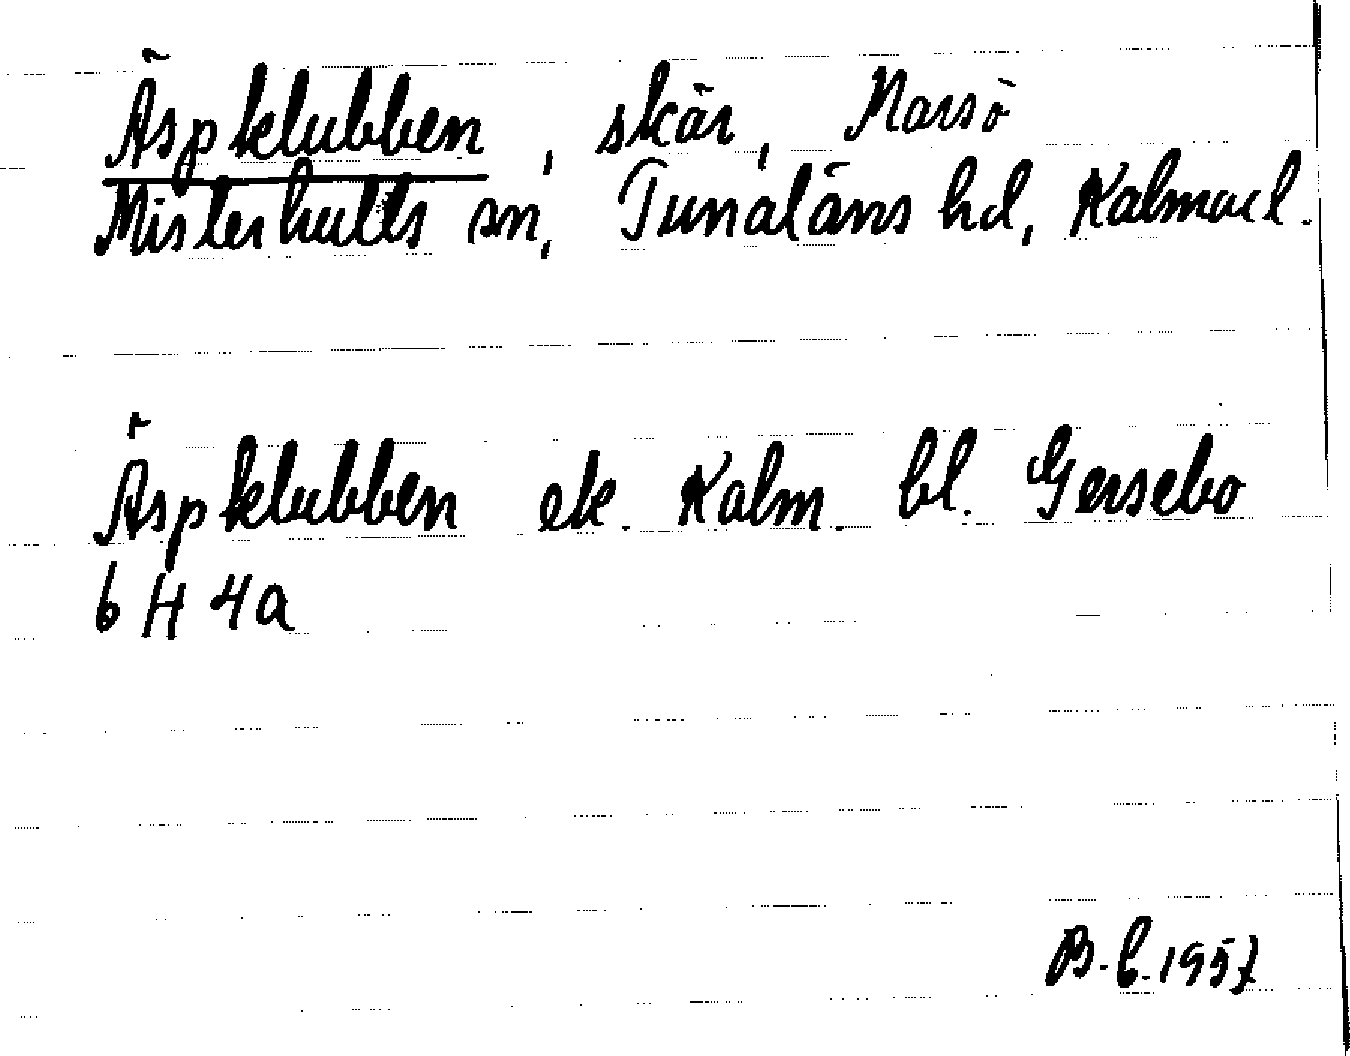 Äspklubben, skär, Marsö
Misterhults sn, Tunaläns hd, Kalmar l.
Äspklubben ek. Kalm. bl. Gersebo
6 H 4a
B-b. 1957